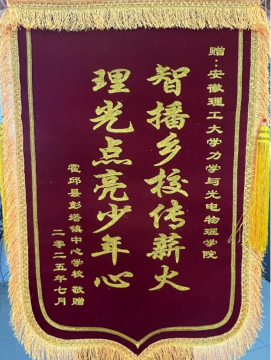 赠：安徽理工大学力学与光电物理学院
智播乡校传薪火
理光点亮少年心
霍邱县彭塔镇中心学校 敬赠
二零二五年七月